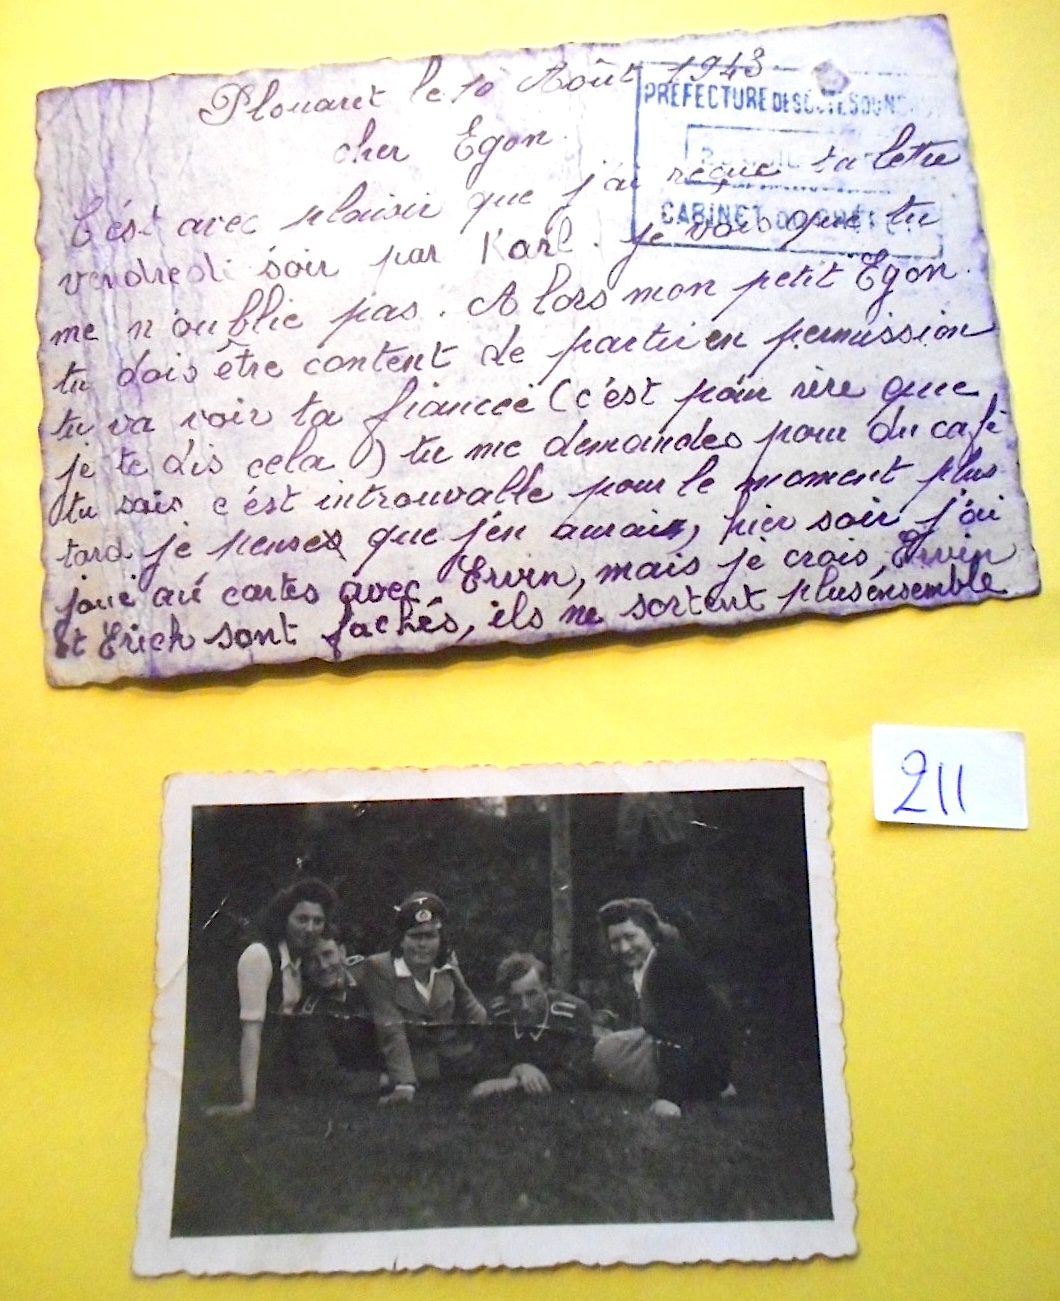 Plouaret le 10 Août 1943
PREFECTURE DES
cher Egon
C'ést avec plaisir que j'ai reçue ta lettre
CABINET
vendredi soir par Karl. je vois que tu
me n'oublie pas. Alors mon petit Egon.
tu dois être content de partir en permission
tu va voir ta fiancée (c'ést pour rire que
je te dis cela) tu me demandes pour du café
tu sais c'ést introuvable pour le moment plus
tard je penses que j'en aurais, hier soir j'ai
joué au cartes avec Ervin, mais je crois, Ervin
et Erich sont fachés, ils ne sortent plus énsemble
211